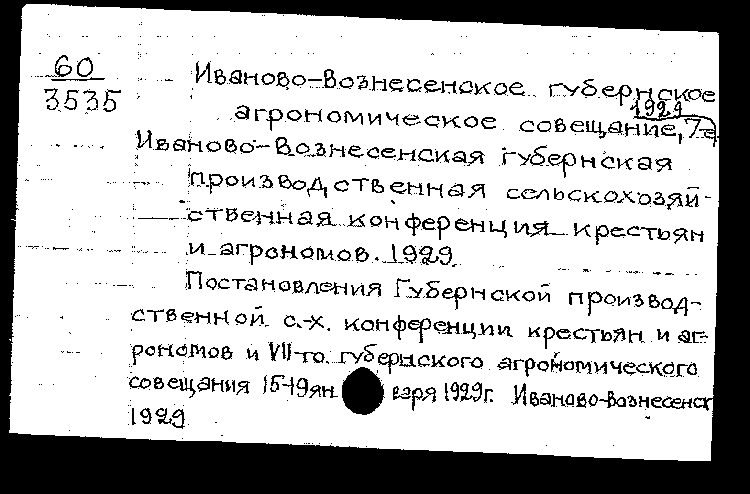 60
3535
Иваново-Вознесенское губернское
1929
агрономическое совещание, 7-е
Иваново-Вознесенская губернская
производственная сельскохозяй-
ственная конференция крестьян
и агрономов. 1929
Постановления Губернской производ-
ственной с.-х. конференции крестьян и аг-
рономов и VII-го губернского агрономического
совещания 15-19 января 1929г. Иваново-Вознесенск
1929